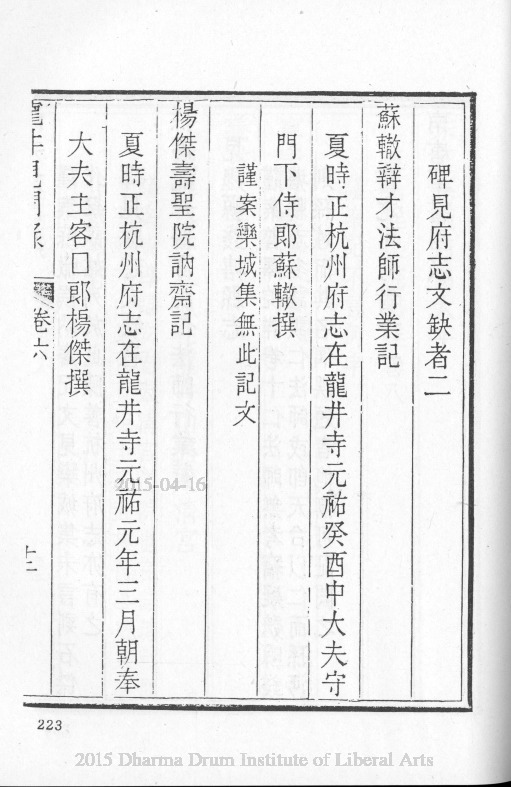 碑見府志文缺者二
蘇轍辯才法師行業記
夏時正杭州府志在龍井寺元祐癸酉中大夫守
門下侍郎蘇轍撰
謹案欒城集無此記文
楊傑壽聖院訥齋記
夏時正杭州府志在龍井寺元祐元年三月朝奉
大夫主客□郎楊傑撰
龍井見聞錄 卷六 十二
223
2015-04-16
2015 Dharma Drum Institute of Liberal Arts